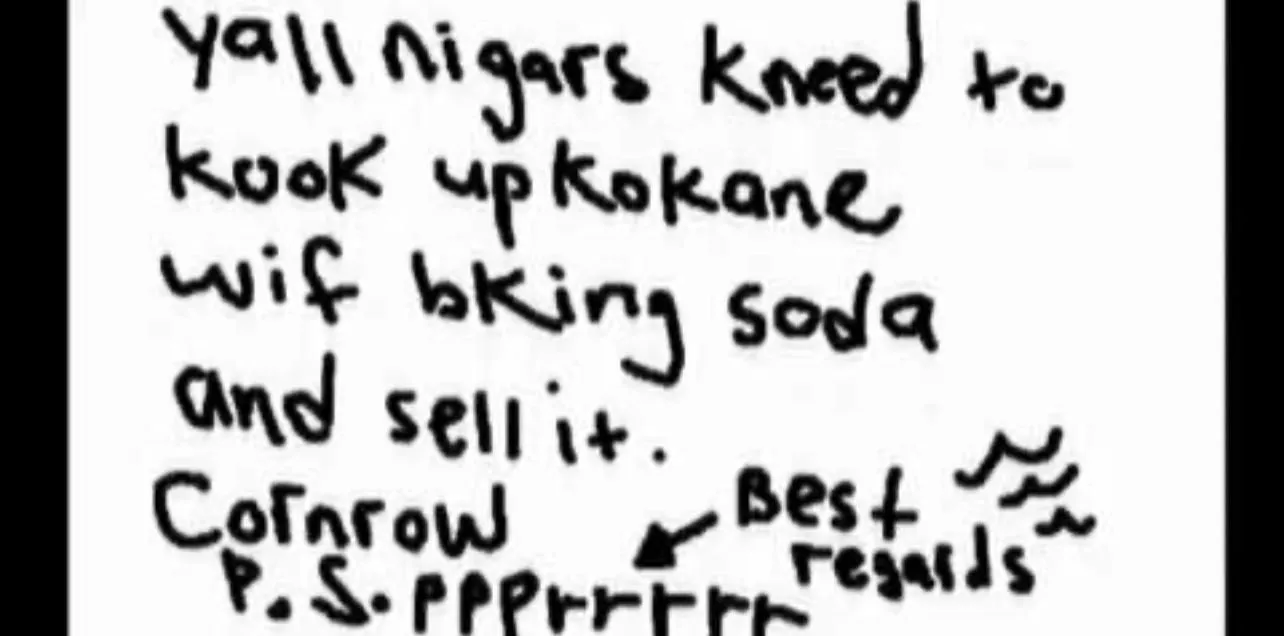 yall nigars kneed to
kook up kokane
wif bking soda
and sell it.
Cornrow
Best
regards
P.S. ppprrrrr